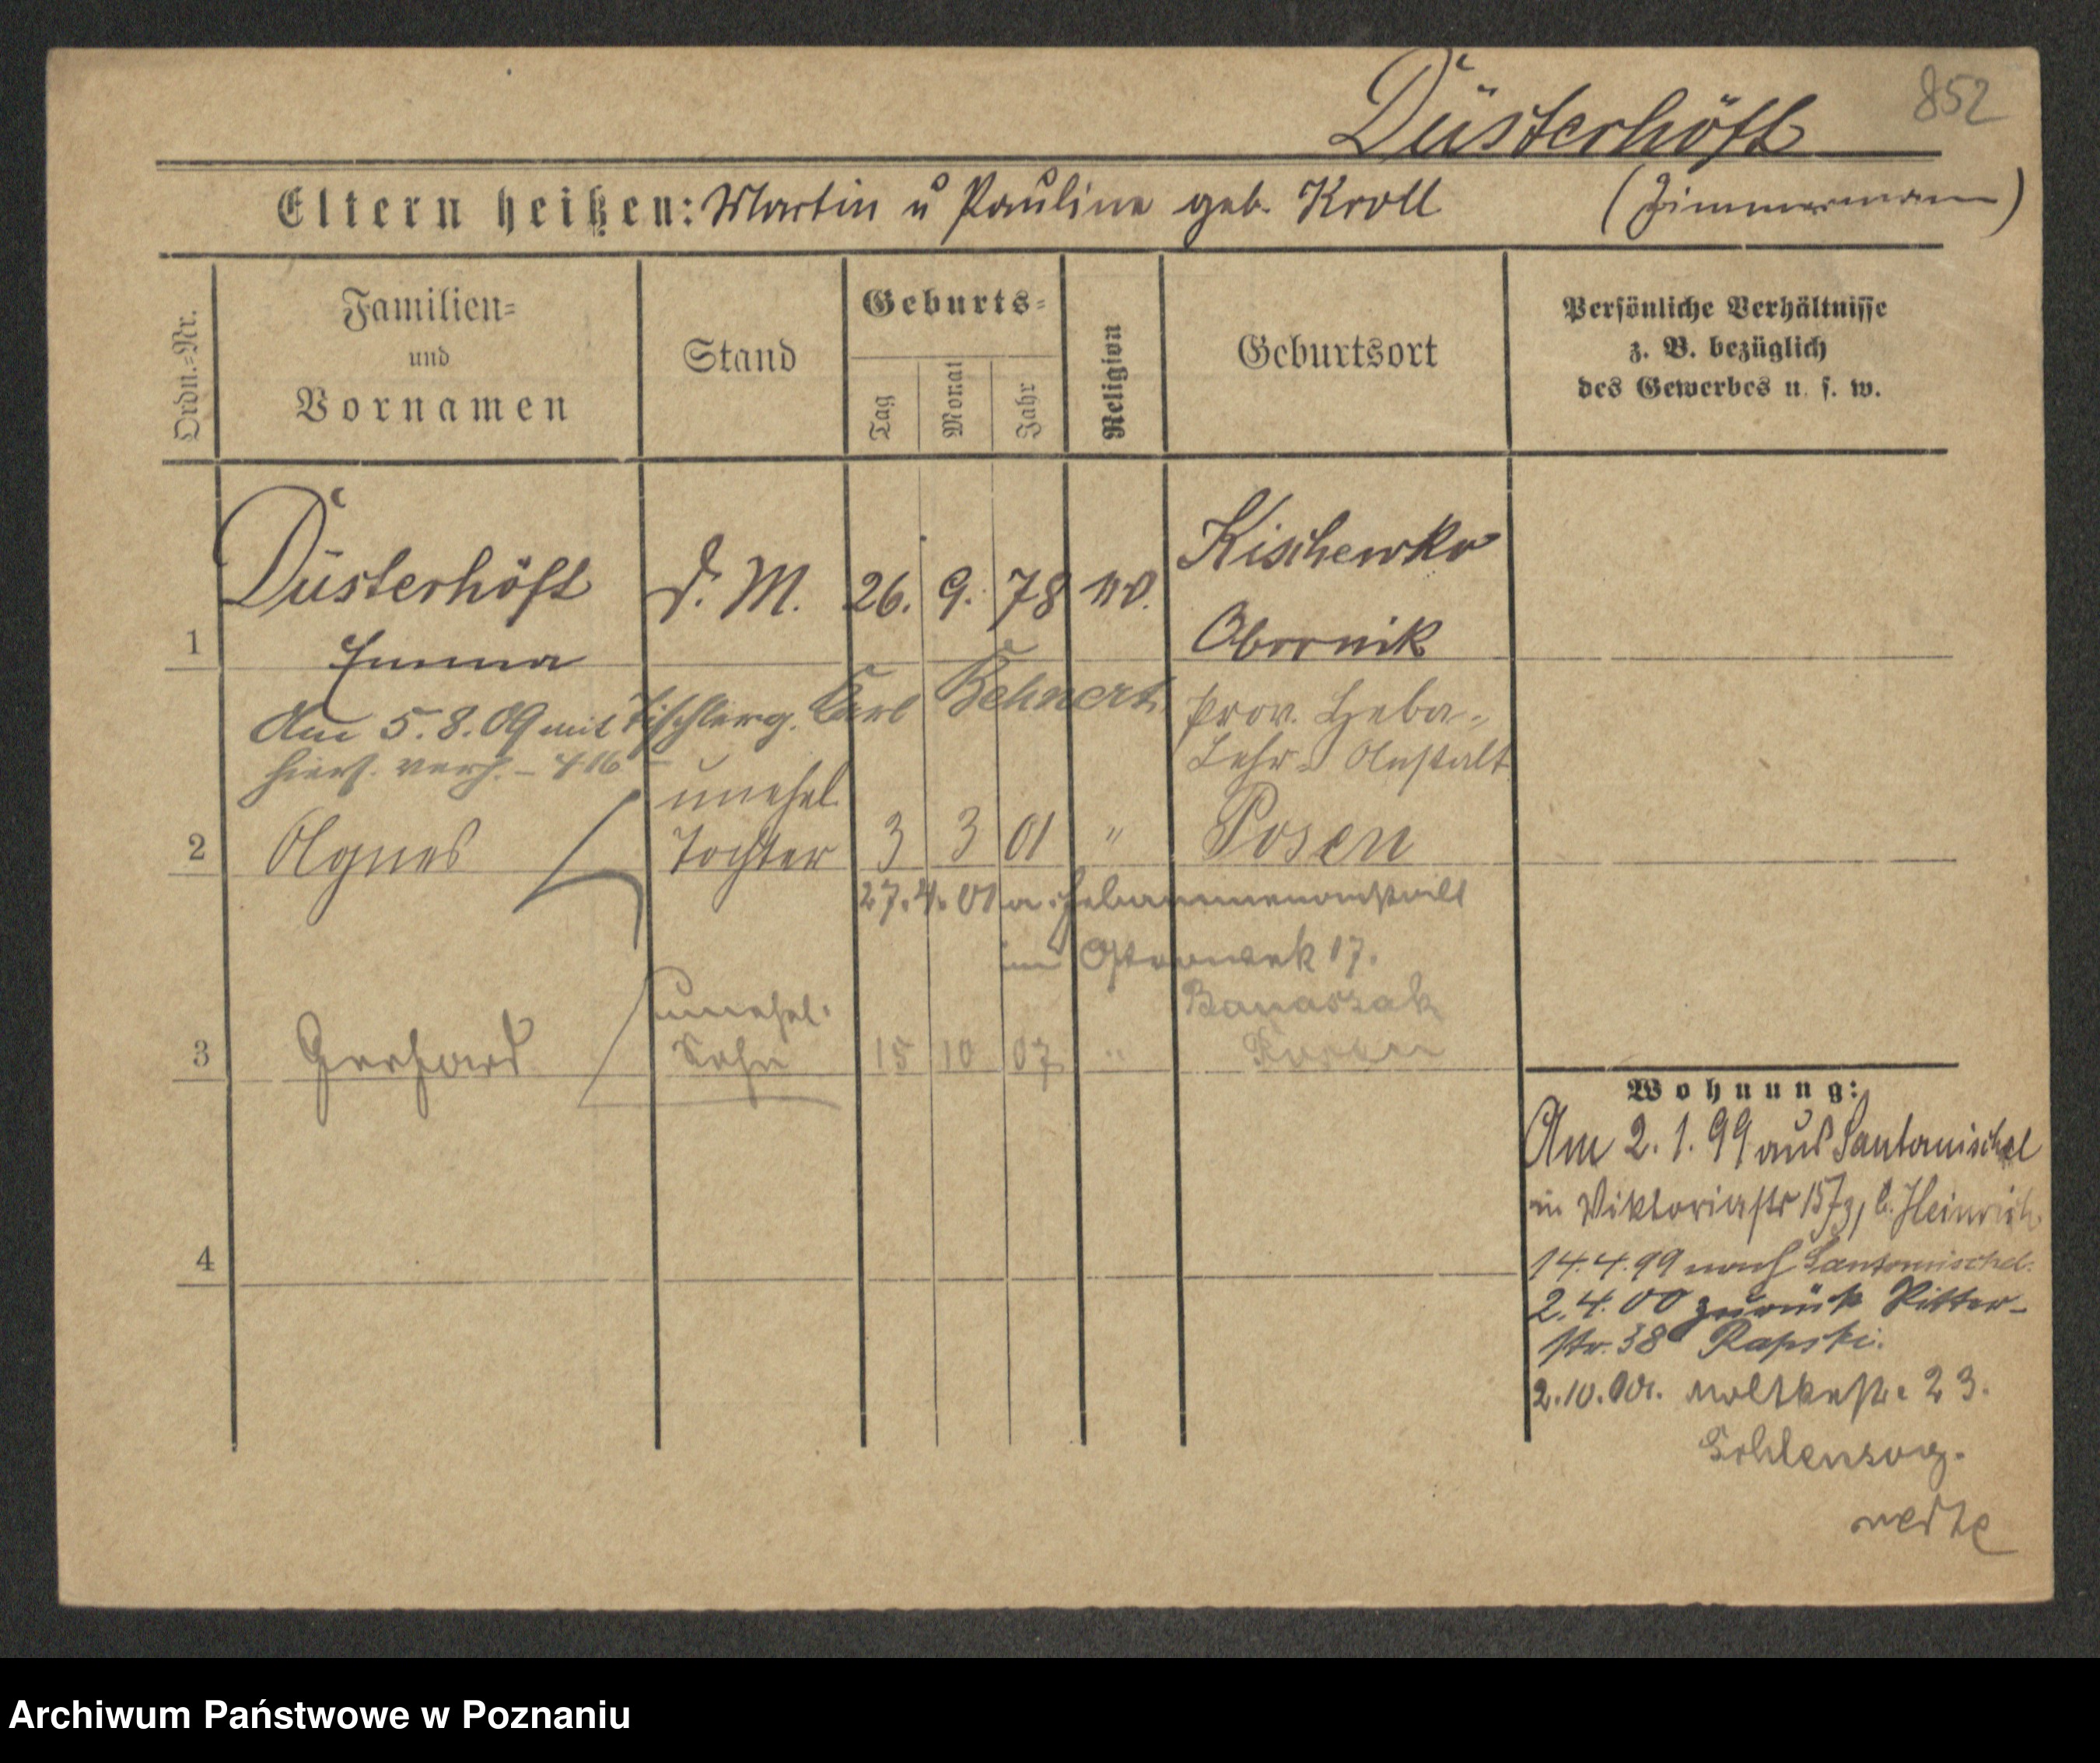 852
Düsterhöft
Eltern heißen: Martin u Pauline geb. Kroll (Zimmermann)
Ordn.-Nr.
Familien-
und
Vornamen
Stand
Geburts-
Tag
Monat
Jahr
Religion
Geburtsort
Persönliche Verhältnisse
z. B. bezüglich
des Gewerbes u. s. w.
Kischewko
Düsterhöft D. M. 26. 9. 78 ev.
1 Emma Obornik
Am 5.8.09 mit Tischlerg. Karl Behnert
hiers. verh. - 416 -
prov. Heba-
Lehr-Anstalt
unehel.
2 Agnes Tochter 3 3 01 " Posen
27.4.01 a. Hebammenanstalt
in Osterwek 17.
Banaszak
unehel.
3 Gerhard Sohn 15 10 07 " Posen
4
Wohnung:
Am 2.1.99 aus Santomischel
in Viktoriastr 15, b. Heinrich
14.4.99 nach Santomischel.
2.4.00 zurück Ritter-
str. 38 Rapski.
2.10.00. Moltkestr. 23.
Archiwum Państwowe w Poznaniu